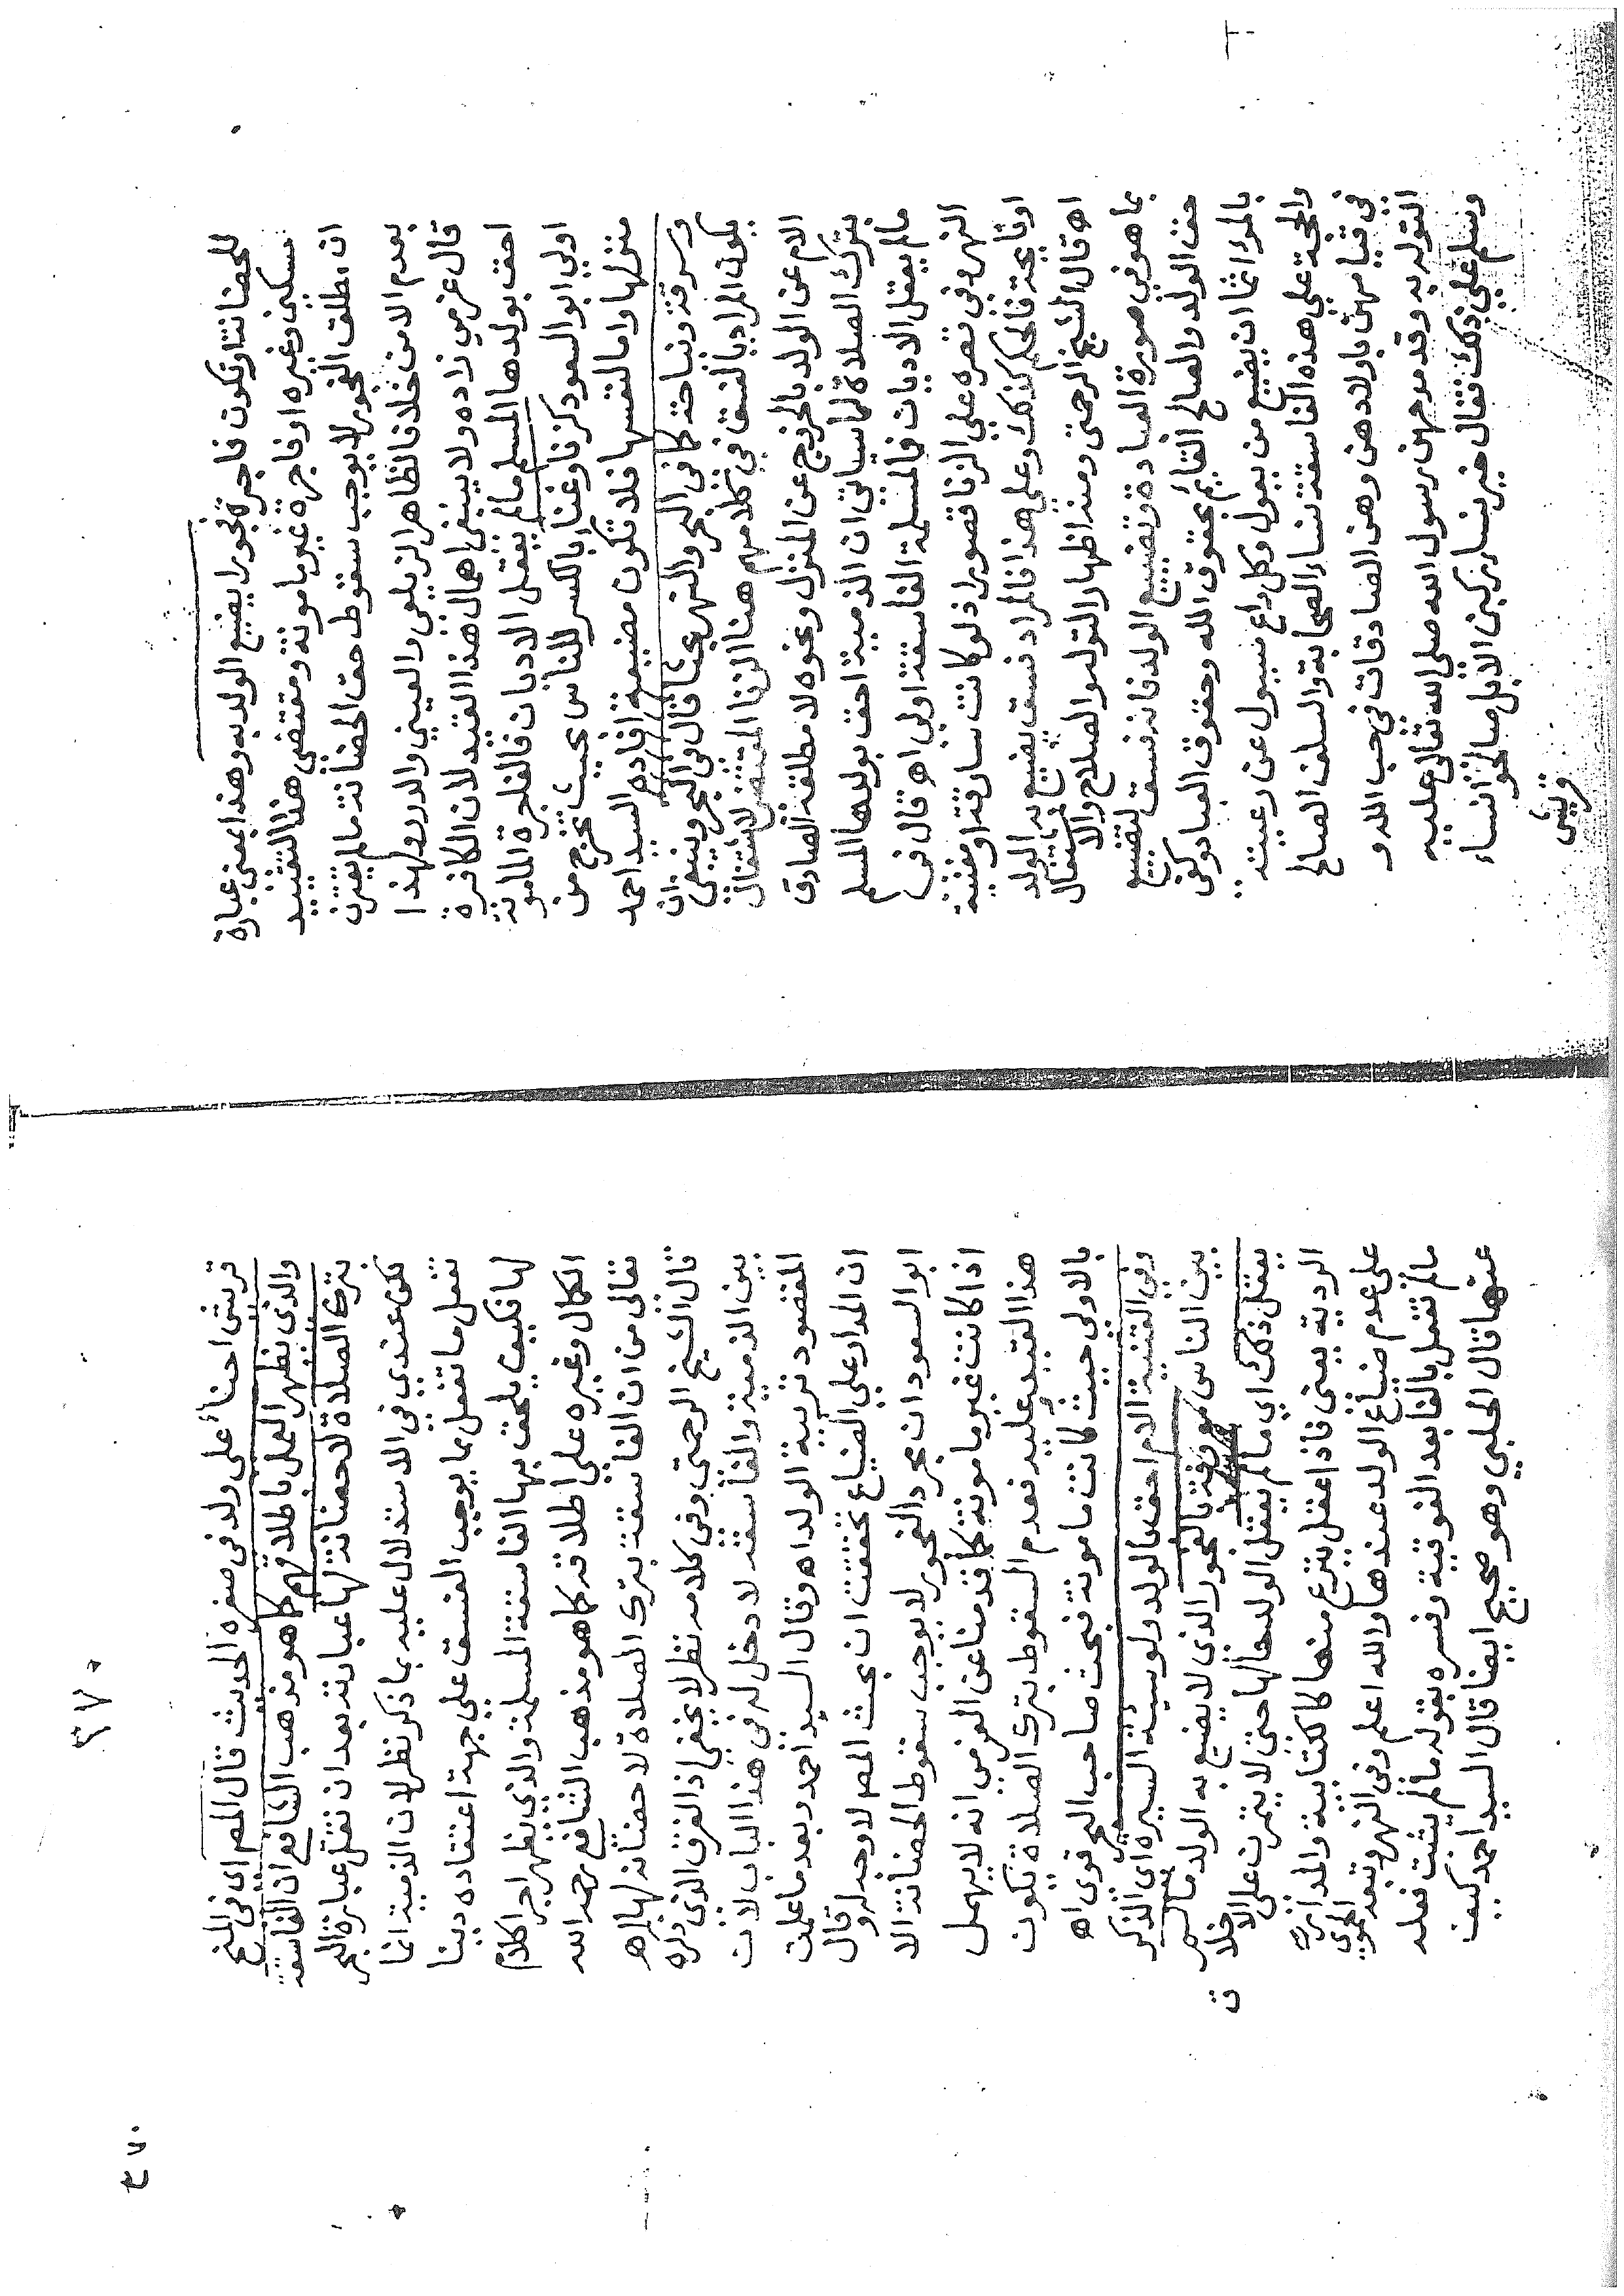 للحضانة او تكون فاجرة فجورا يضيع الولد به وهذا بمعنى عبارة
مسكين وغيره او فاجرة غير مامونة ومقتضى هذا التقييد
ان مطلق الفجور لا يوجب سقوط حق الحضانة مالم يقترن
بعدم الامن خلافا لظاهر الزيلعي والعيني والدرر ولهذا
قال عزمي زاده ولا ينبغي اهمال هذا القيد لان الكافرة
احق بولدها المسلم مالم يعقل الاديان فالفاجرة المامونة
اولى ابو السعود كزنا وغنا بالكسر للناس بحيث تخرج من
منزلها واما لنفسها فلا تكون مضيعة افاده السيد احمد
وسرقة ونياحة كما في البحر والنهر بحثا قال في البحر وينبغي ان
يكون المراد بالفسق في كلامهم هنا الزنا المقتضي لاشتغال
الام عن الولد بالخروج عن المنزل ونحوه لا مطلقه الصادق
بترك الصلاة لما سياتي ان الذمية احق بولدها المسلم
مالم يعقل الاديان فالمسلمة الفاسقة اولى اه قال في
النهر وفي قصره على الزنا قصور اذ لو كانت سارقة او مغنية
او نائحة فالحكم كذلك وعلى هذا فالمراد فسق يضيع به الولد
اه قال الشيخ الرحمتي ومنه اظهار التوله والصلاح والاشتغال
بما هو في صورة العبادة وتضييع الولد فانه فسق لتضييع
حق الولد والصالح القائم بحقوق الله وحقوق العباد وكفى
بالمرء اثما ان يضيع من يعول وكل راع مسول عن رعيته
والحجة على هذه الفاسقة نساء الصحابة والسلف الصالح
في قيامهن باولادهن وهن الصادقات في حب الله و
التوله به وقد مدحهن رسول الله صلى الله تعالى عليه
وسلم على ذلك فقال خير نساء ركبن الابل صالحو نساء
قريش
قريش احناه على ولد في صغره الحديث قال المص اي في المنح
والذي يظهر العمل باطلاقهم كما هو مذهب الشافعي ان الفاسقة
بترك الصلاة لا حضانة لها عبارته بعد ان نقل عبارة البحر
لكن عندي في الاستدلال عليه بما ذكر نظر لان الذمية انما
تفعل ما تفعل مما يوجب الفسق على جهة اعتقاده دينا
لها فكيف يلحق بها الفاسقة المسلمة والذي يظهر اجراء كلام
الكمال وغيره على اطلاقه كما هو مذهب الشافعي رحمه الله
تعالى من ان الفاسقة بترك الصلاة لا حضانة لها اه
قال الشيخ الرحمتي وفي كلامه نظر لا يخفى اذ الفرق الذي ذكره
بين الذمية والفاسقة لا دخل له في هذا الباب لان
المقصود تربية الولد اه وقال السيد احمد وبعد ما علمت
ان المدار على الضياع تحققت ان بحث المص لا وجه له وقال
ابو السعود ان مجرد الفجور لا يوجب سقوط الحضانة الا
اذا كانت غير مامونة كما قدمناه عن العزمي انه لا يهمل
هذا القيد وعليه فعدم السقوط بترك الصلاة يكون
بالاولى حيث كانت مامونة فبحث صاحب البحر قوي اه
وفي القنية الام احق بالولد ولو سيئة السيرة اي الذكر
بين الناس معروفة بالفجور الذي لا يضيع به الولد مالم
يعقل ذلك اي مالم يعقل الولد حالها حتى لا يتمرن على الاخلاق
الردية يعني فاذا عقل ينزع منها كالكتابية والمدار
على عدم ضياع الولد عندها والله اعلم وفي النهر وتبعه الحموي
مالم تفعل بالفا بعد الفوقية وفسره بقوله مالم يثبت فعله
عنها قال الحلبي وهو صحيح ايضا قال السيد احمد كيف